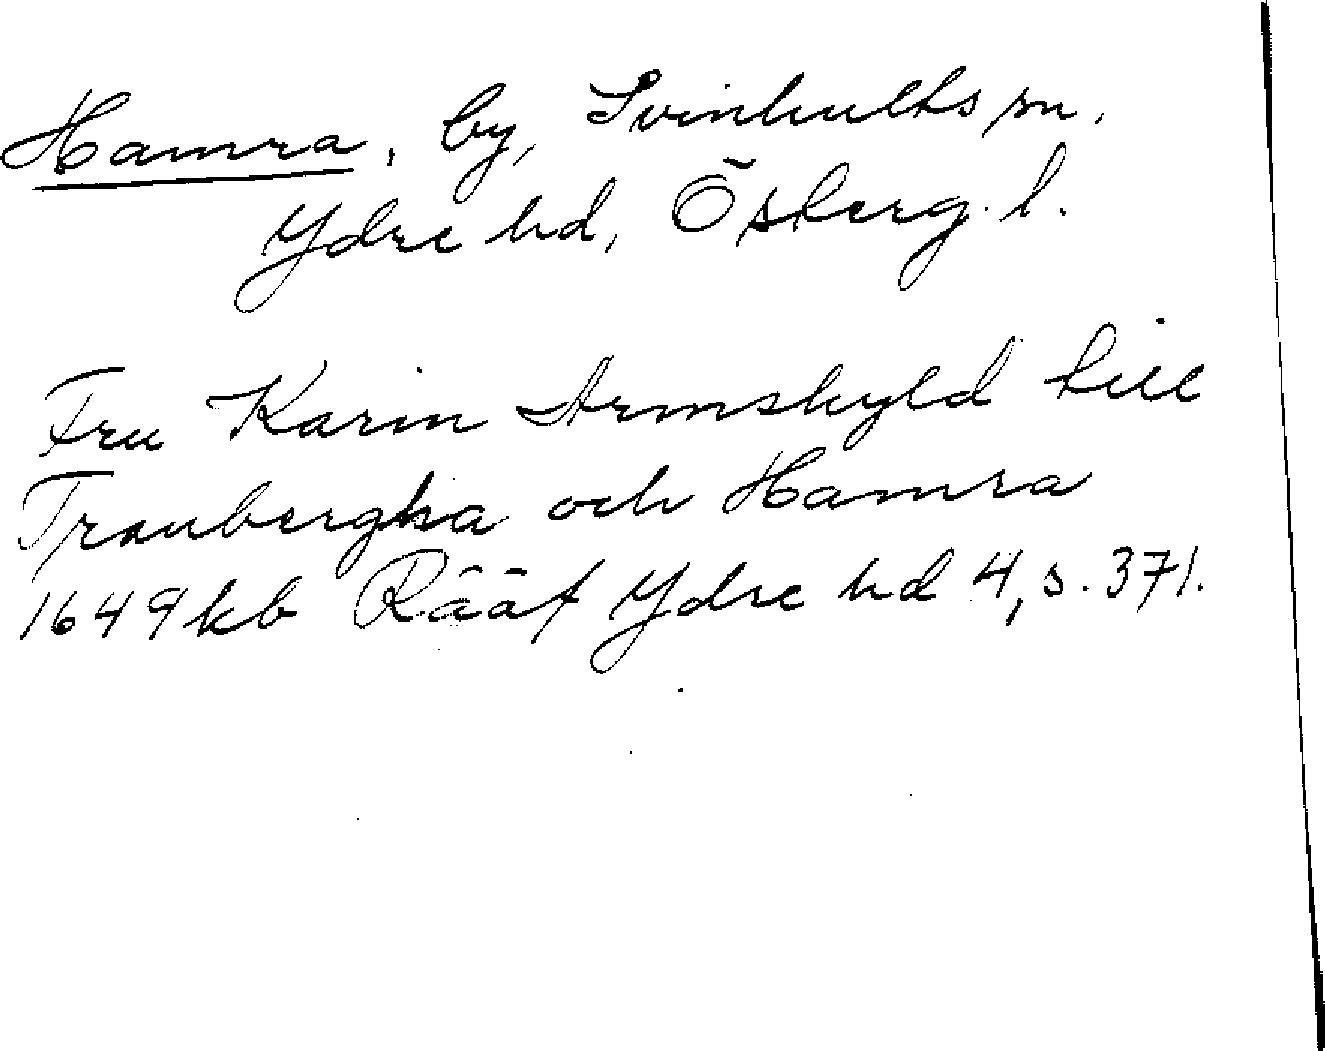 Hamra, by, Svinhults sn.
Ydre hd, Österg. l.
Fru Karin Armskyld till
Tranbergha och Hamra
1649 kb Rääf Ydre hd 4, s. 371.